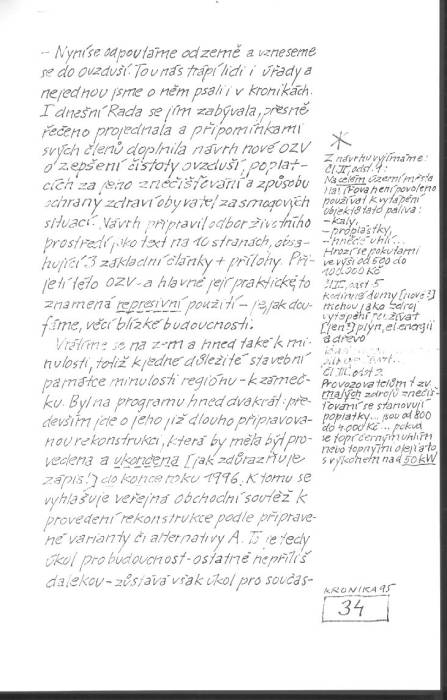 – Nyní se odpoutáme od země a vzneseme
se do ovzduší. To u nás trápí lidi i úřady a
nejednou jsme o něm psali i v kronikách.
I dnešní Rada se jím zabývala, přesně
řečeno projednala a připomínkami
svých členů doplnila návrh nové OZV
o zepšení čistoty ovzduší, poplat-
cích za jeho znečišťování a způsobu
ochrany zdraví obyvatel za smogových
situací. Návrh připravil odbor životního
prostředí jako text na 10 stranách, obsa-
hující 3 základní články + přílohy. Při-
jetí této OZV - a hlavně její praktické, to
znamená represivní použití – je, jak dou-
fáme, věcí blízké budoucnosti.
Vrátíme se na z-m a hned také k mi-
nulosti, totiž k jedné důležité stavební
památce minulosti regionu - k zámeč-
ku. Byl na programu hned dvakrát: pře-
devším jde o jeho již dlouho připravova-
nou rekonstrukci, která by měla být pro-
vedena a ukončena [jak zdůrazňuje
zápis!] do konce roku 1996. K tomu se
vyhlašuje veřejná obchodní soutěž k
provedení rekonstrukce podle připrave-
né varianty či alternativy A. To je tedy
úkol pro budoucnost - ostatně nepříliš
dalekou - zůstává však úkol pro součas-
Z návrhu vyjímáme:
Čl. II, odst. 1:
Na celém území města
není povoleno
používat k vytápění
objektů tato paliva:
– kaly,
– proplástky,
– hnědé uhlí...
Hrozí se pokutami
ve výši od 500 do
100.000 Kč
odst. 5
Rodinné domy [nové?]
mohou jako zdroj
vytápění používat
[jen?] plyn, el. energii
a dřevo
Čl. III, odst. 2
Provozovatelům tzv.
malých zdrojů znečiš-
ťování se stanovují
poplatky... jsou od 800
do 4.000 Kč... pokud
se topí černým uhlím
nebo topnými oleji a to
s výkonem nad 50 kW
KRONIKA 95
34